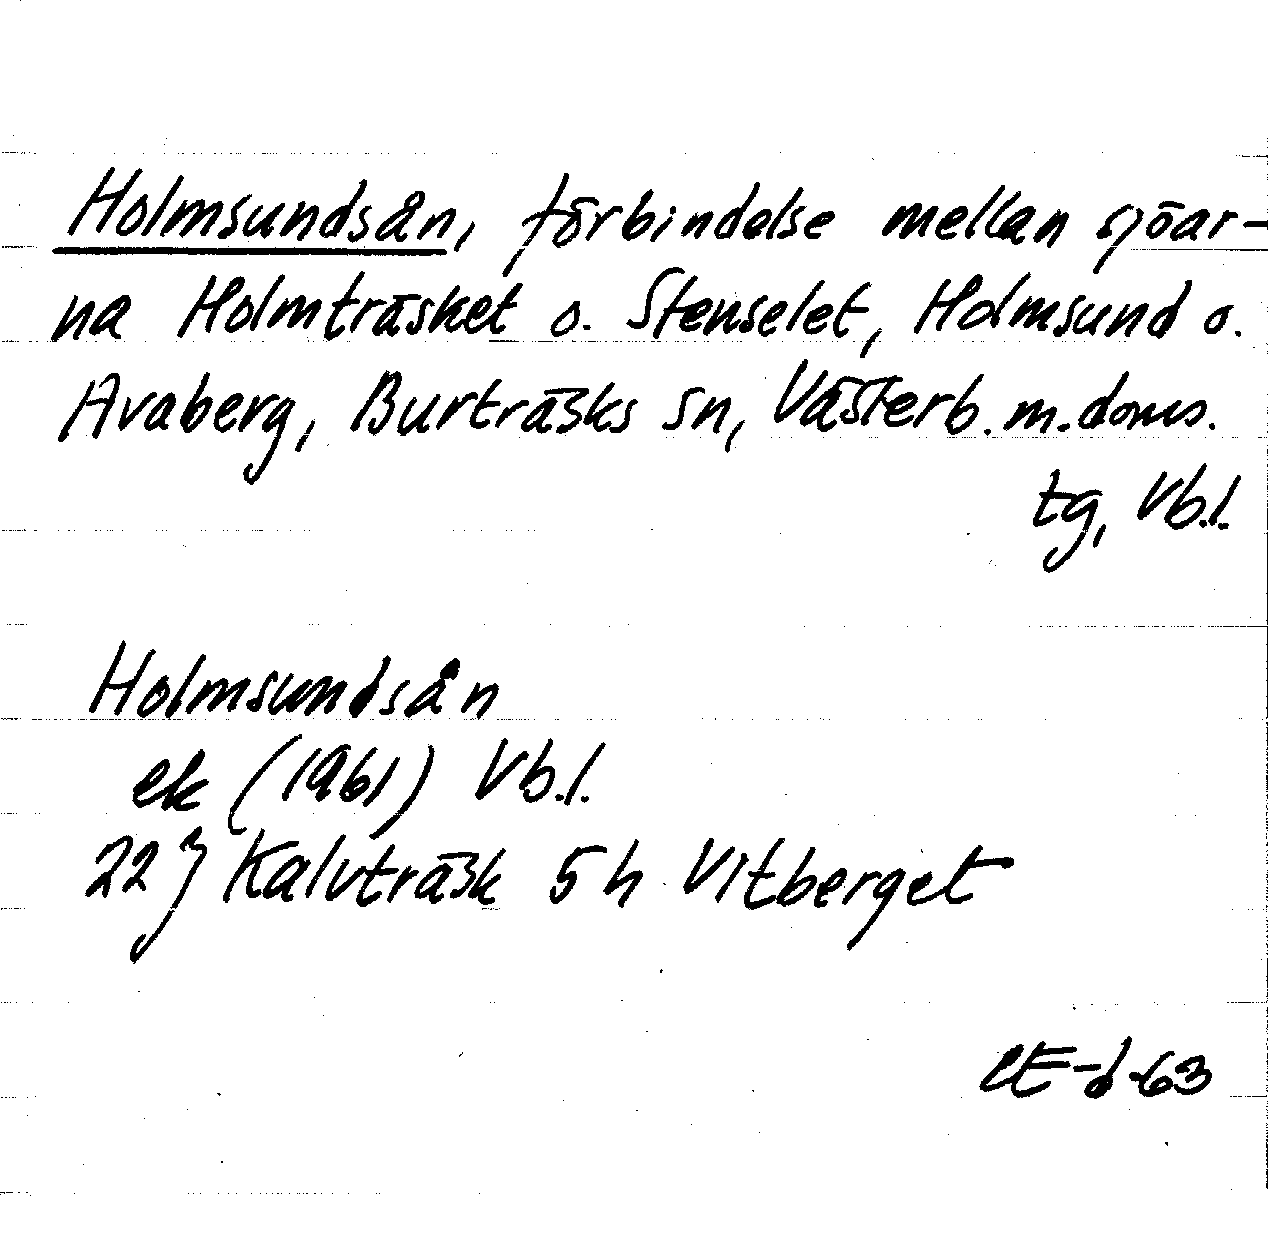 Holmsundsån, förbindelse mellan sjöar-
na Holmträsket o. Stenselet, Holmsund o.
Avaberg, Burträsks sn, Västerb. m. doms.
tg, Vb.l.
Holmsundsån
ek (1961) Vb.l.
22 J Kalvträsk 5 h Vitberget
-63